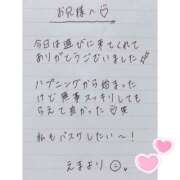 お兄様へ♡
今日は遊びに来てくれて
ありがとうございました
ハプニングから始まった
けど無事スッキリしても
らえて良かった♡笑
私もバスケしたい〜!
えまより